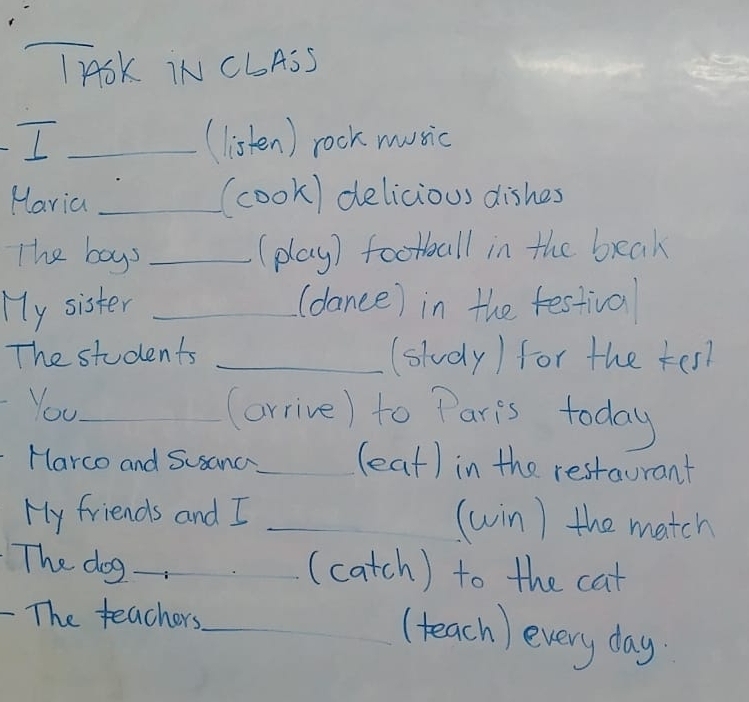 TASK IN CLASS
- I ______ (listen) rock music
Maria ______ (cook) delicious dishes
The boys ______ (play) football in the break
My sister ______ (dance) in the festival
The students ______ (study) for the test
- You ______ (arrive) to Paris today
- Marco and Susana ______ (eat) in the restaurant
My friends and I ______ (win) the match
- The dog ______ (catch) to the cat
- The teachers ______ (teach) every day.